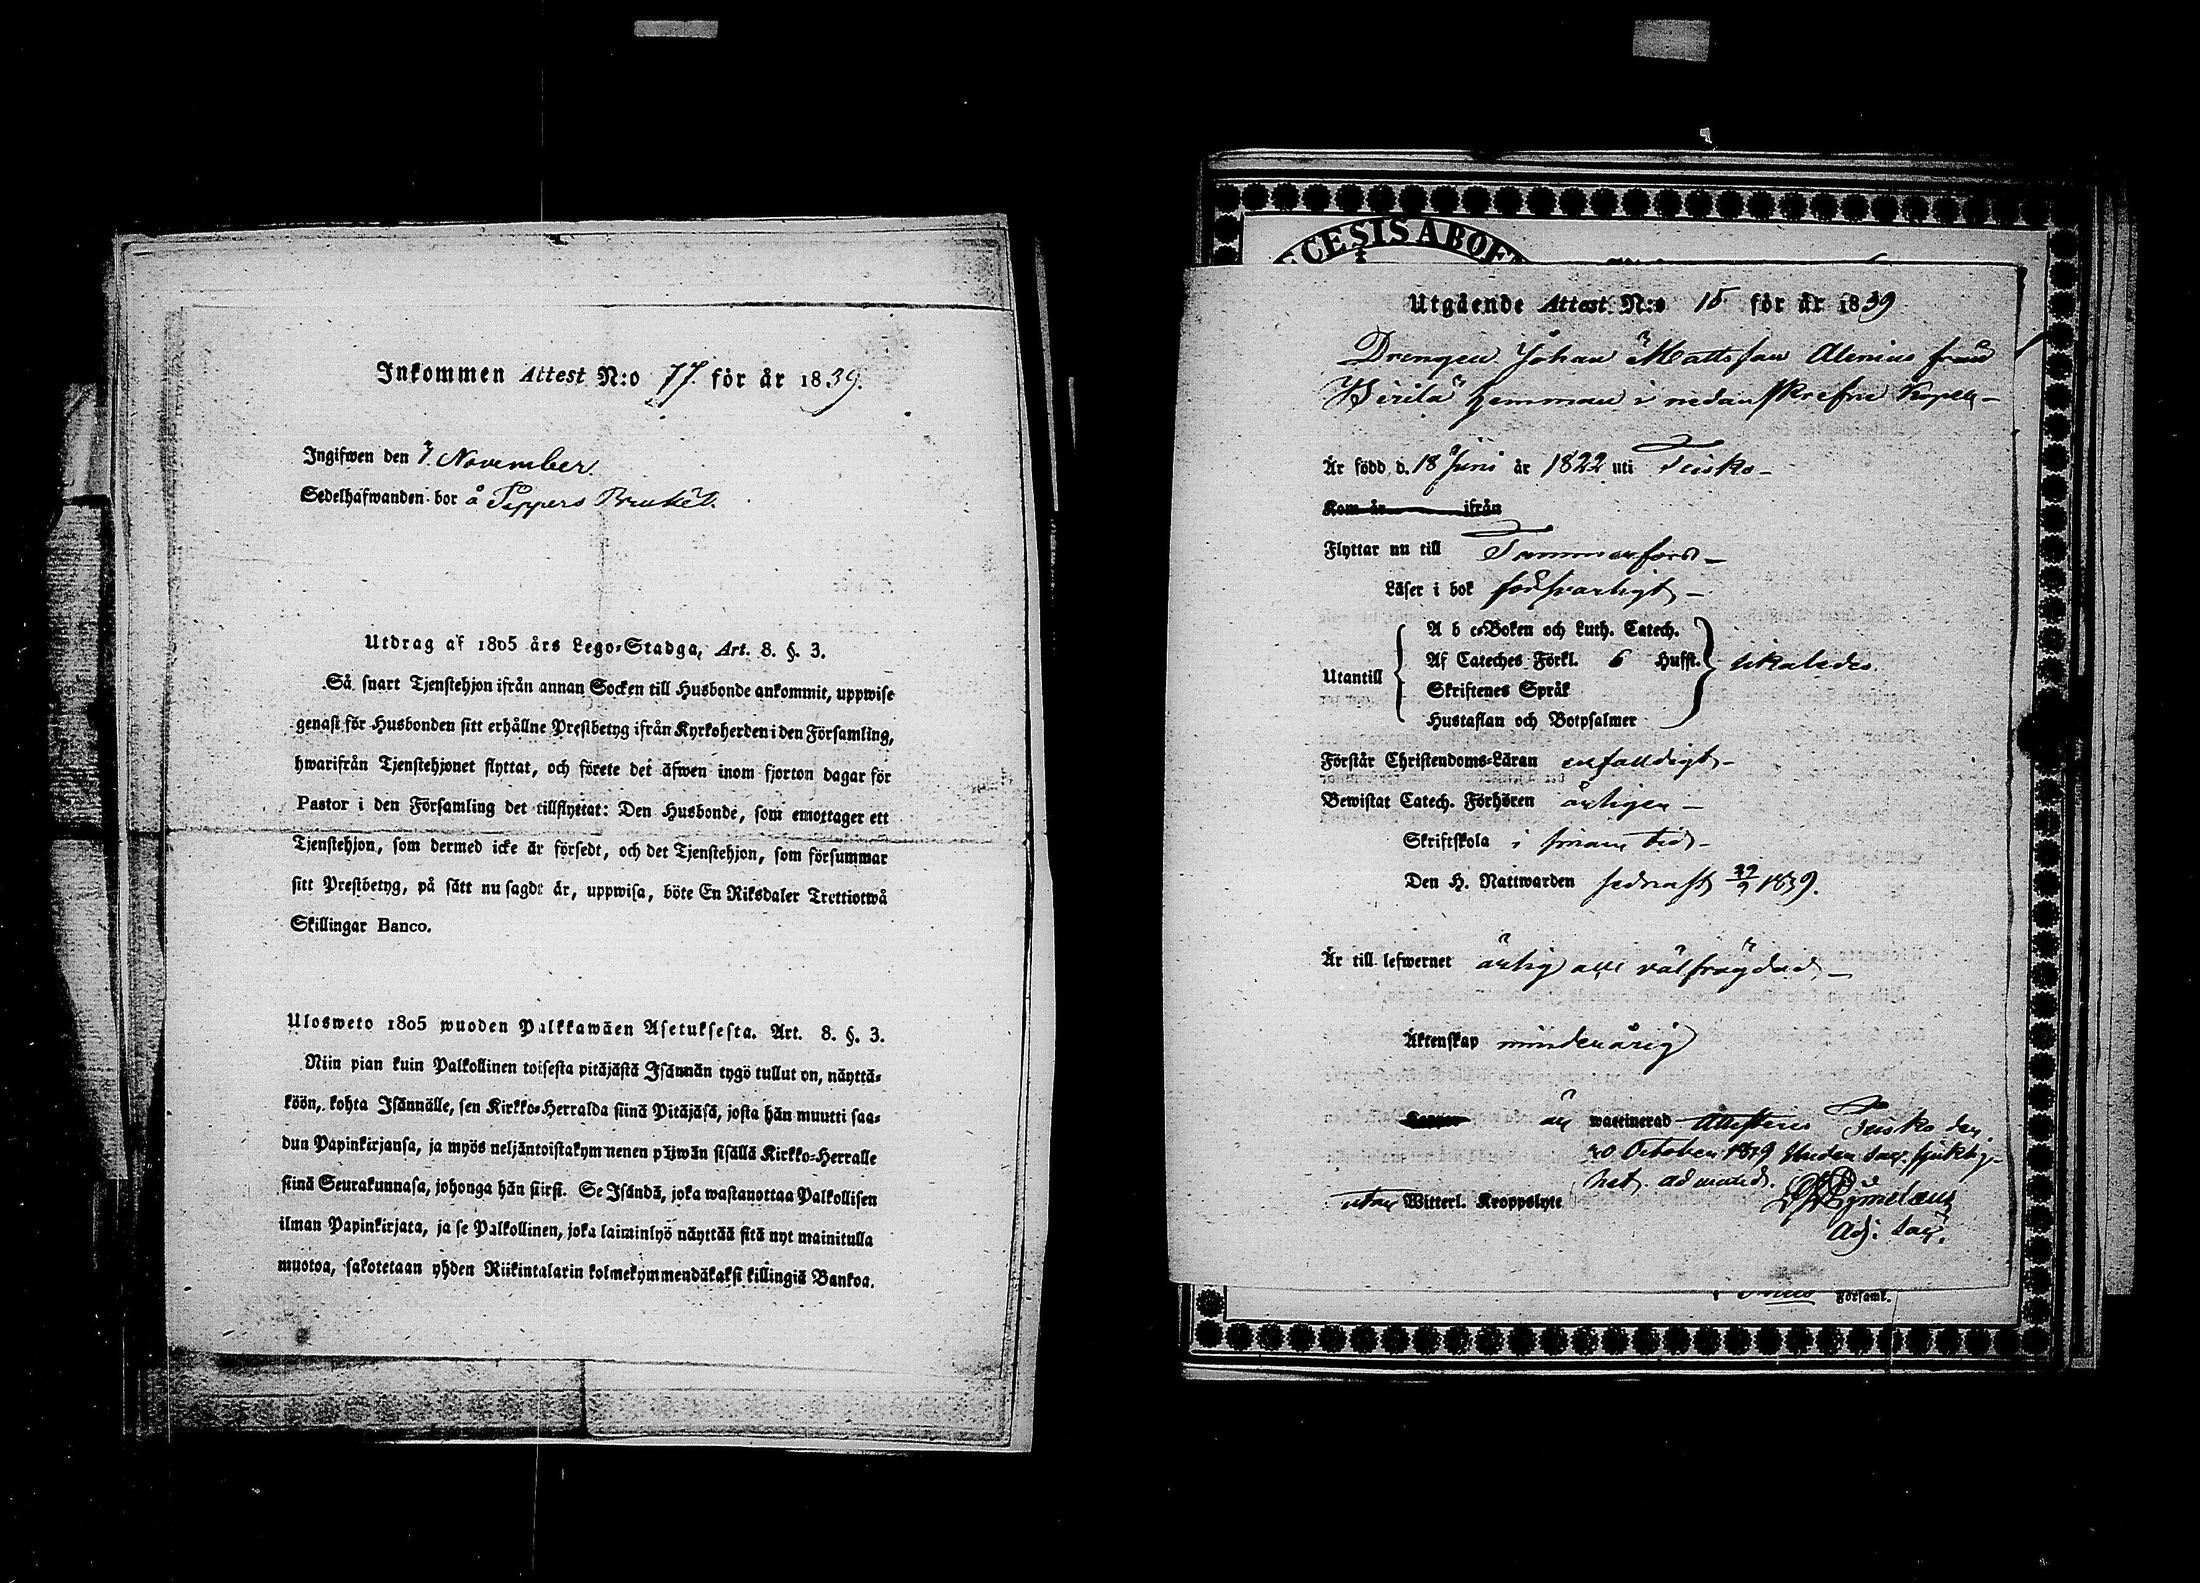 Inkommen Attest N:o 77. för år 1839.
Ingifwen den 7. November.
Sedelhafwanden bor å Peppers Bruket.
Utdrag af 1805 års Lego-Stadga, Art. 8. §. 3.
Så snart Tjenstehjon ifrån annan Socken till Husbonde ankommit, uppwise
genast för Husbonden sitt erhållne Prestbetyg ifrån Kyrkoherden i den Församling,
hwarifrån Tjenstehjonet flyttat, och förete det äfwen inom fjorton dagar för
Pastor i den Församling det tillflyttat: Den Husbonde, som emottager ett
Tjenstehjon, som dermed icke är försedt, och det Tjenstehjon, som försummar
sitt Prestbetyg, på sätt nu sagdt är, uppwisa, böte En Riksdaler Trettiotwå
Skillingar Banco.
Ulosweto 1805 wuoden Palkkawäen Asetuksesta. Art. 8. §. 3.
Niin pian kuin Palkollinen toisesta pitäjästä Isännän tygö tullut on, näyttä-
köön, kohta Isännälle, sen Kirkko-Herralda siinä Pitäjäsä, josta hän muutti saa-
dun Papinkirjansa, ja myös neljäntoistakymmenen päiwän sisällä Kirkko-Herralle
siinä Seurakunnasa, johonga hän siirst. Se Isändä, joka wastanottaa Palkollisen
ilman Papinkirjata, ja se Palkollinen, joka laiminlyö näyttää sitä nyt mainitulla
muotoa, sakotetaan yhden Riikintalarin kolmekymmendäkaksi killingiä Bankoa.
CESIS ABOE
Utgående Attest N:o 15 för år 1839
Drengen Johan Mattsson Alenius från
Wérilä hemman i nedanskrefne Kapell
Är född d. 18 Juni år 1822 uti Teisko
Kom år ifrån
Flyttar nu till Tammerfors
Läser i bok försvarligt
A b c-Boken och Luth. Catech.
Utantill Af Cateches Förkl. 6 Hufst. likaledes
Skriftenes Språk
Hustaflan och Botpsalmer
Förstår Christendoms-Läran enfaldigt
Bewistat Catech. Förhören årligen
Skriftskola i sinom tid
Den H. Nattwarden sednast 22/9 1839.
Är till lefwernet ärlig och välfrägdad
Äktenskap minderårig
Koppor är waccinerad Attesteras Teisko den
20 October 1839 Under Sac. sjuklig-
het ad mand.
utan Witterl. Kroppslyte
Adj. Sac.
Församl.